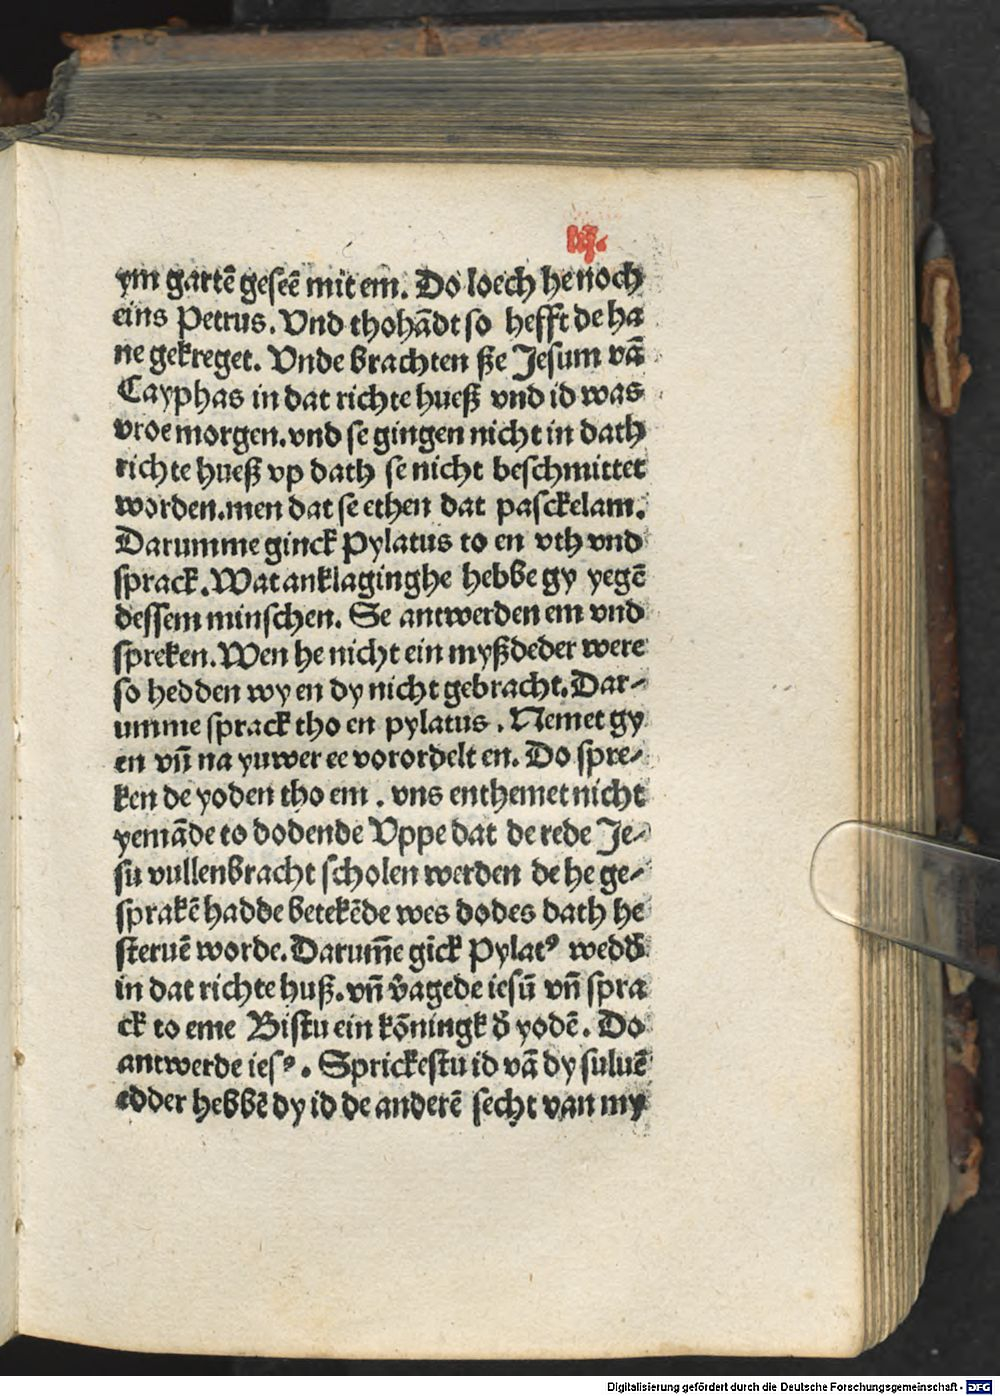 iij.
ym gartē geseē mit em. Do loech he noch
eins Petrus. Vnd thohādt so hefft de ha
ne gekreget. Vnde brachten ße Jesum vā
Cayphas in dat richte hueß vnd id was
vroe morgen. vnd se gingen nicht in dath
richte hueß vp dath se nicht beschmittet
worden. men dat se ethen dat pasckelam.
Darumme ginck Pylatus to en vth vnd
sprack. Wat anklaginghe hebbe gy yegē
dessem minschen. Se antwerden em vnd
spreken. Wen he nicht ein myßdeder were
so hedden wy en dy nicht gebracht. Dar⸗
umme sprack tho en pylatus. Nemet gy
en vn̄ na yuwer ee vorordelt en. Do spre⸗
ken de yoden tho em. vns enthemet nicht
yemāde to dodende Vppe dat de rede Je⸗
su vullenbracht scholen werden de he ge⸗
sprakē hadde betekēde wes dodes dath he
steruē worde. Darum̄e gīck Pylatꝰ wedd̄
in dat richte huß. vn̄ v̄agede iesū vn̄ spra
ck to eme Bistu ein kōningk d̄ yodē. Do
antwerde iesꝰ. Sprickestu id vā dy suluē
edder hebbē dy id de anderē secht van my
Digitalisierung gefördert durch die Deutsche Forschungsgemeinschaft - DFG